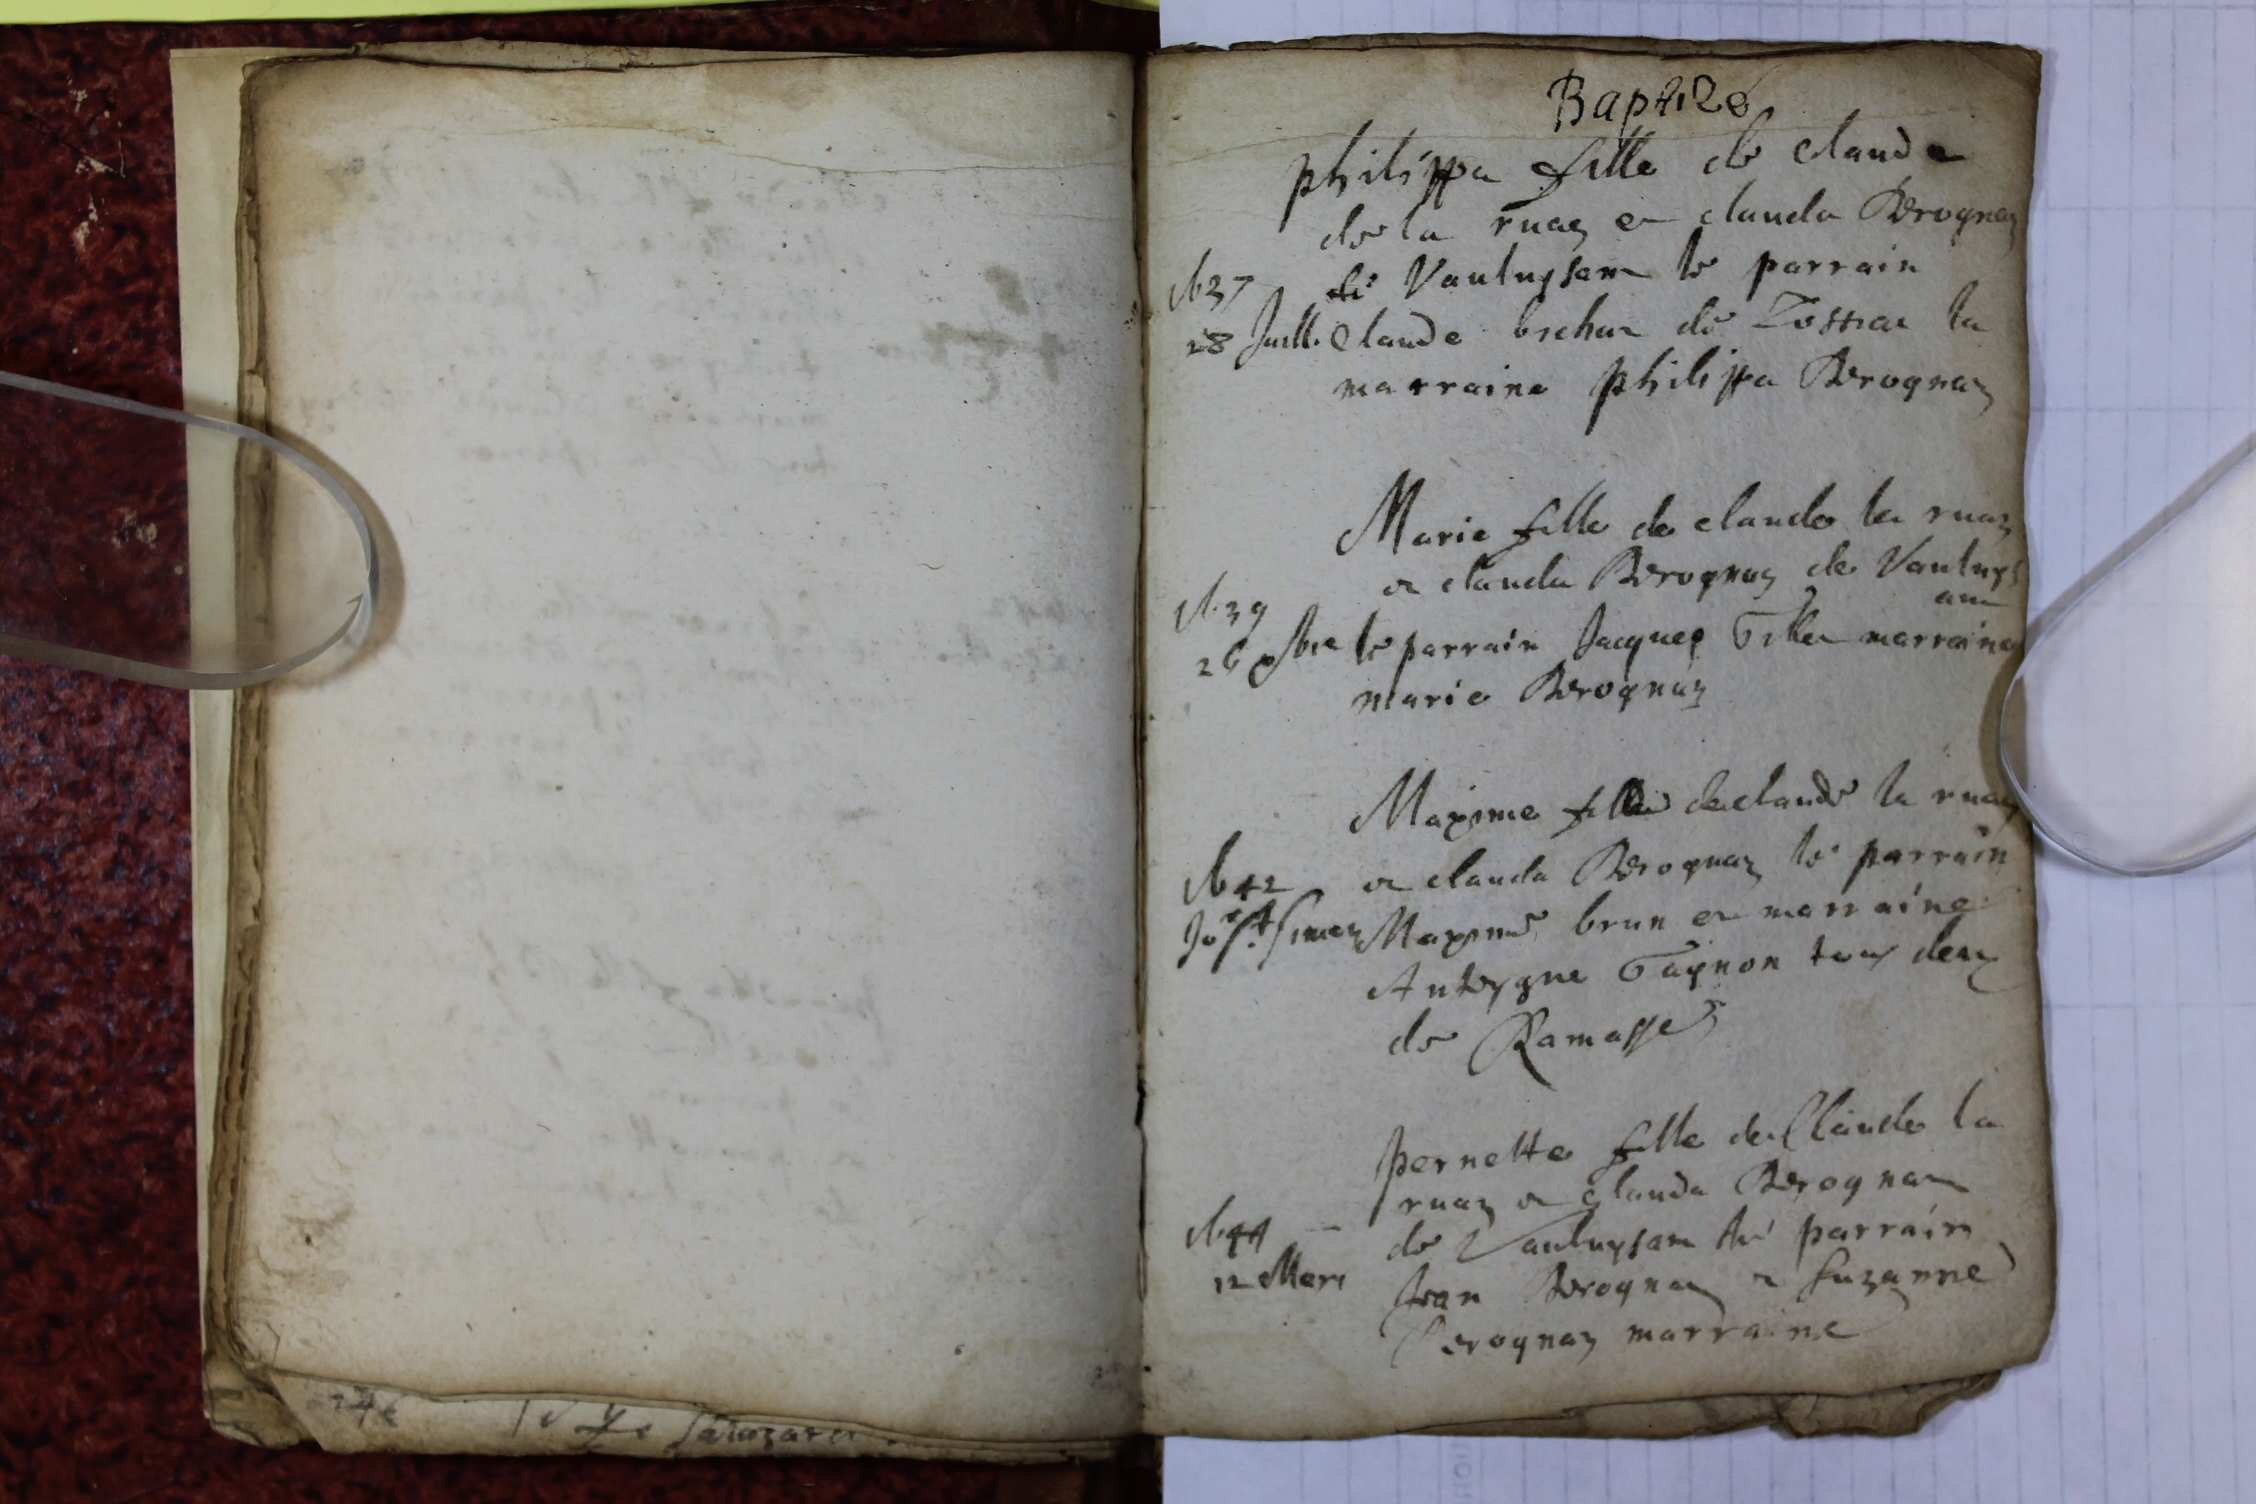 Baptize
philippa fille de claude
de la ruaz et clauda Berognaz
de Vauluysant le parrain
1637
28 Juill. Claude bichat de Tossiat la
marraine philippa Berognaz
Marie fille de claude la ruaz
et clauda Berognaz de Vauluys
ant
1639
26 xbre le parrain Jacques marraine
marie Berognaz
Maxime fille de claude la ruaz
1642 et clauda Berognaz le parrain
Maxime brun et marraine
Anthoyne Gaynon tous deux
de Ramasse
pernette fille de Claude la
ruaz et Clauda Berognaz
1644 de Vauluysant le parrain
12 Mars Jean Berognaz et Suzanne
Berognaz marraine